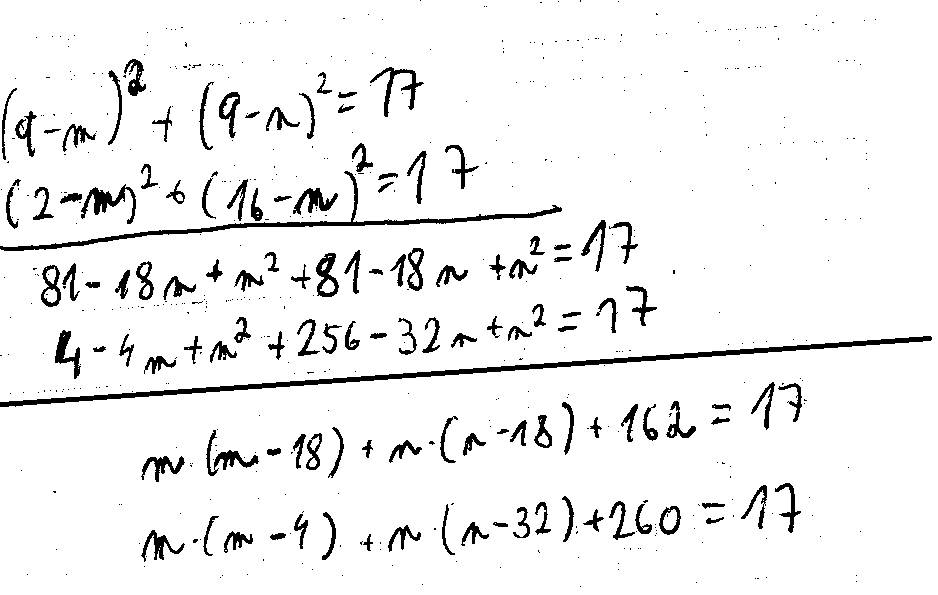 (9-m)² + (9-n)² = 17
(2-m)² + (16-n)² = 17
81 - 18m + m² + 81 - 18n + n² = 17
4 - 4m + m² + 256 - 32n + n² = 17
m·(m-18) + n·(n-18) + 162 = 17
m·(m-4) + n·(n-32) + 260 = 17